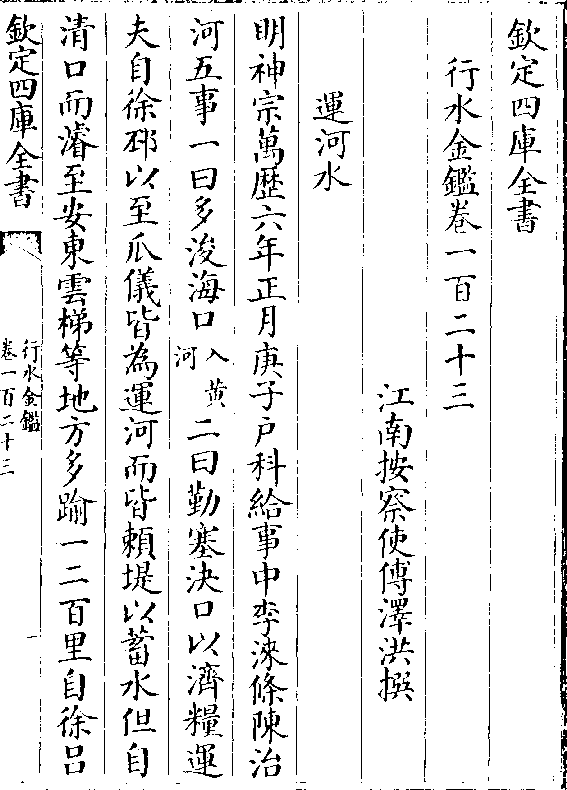 欽定四庫全書
行水金鑑卷一百二十三
江南按察使傅澤洪撰
運河水
明神宗萬歷六年正月庚子户科給事中李淶條陳治
河五事一曰多浚海口入黄河二曰勤塞決口以濟糧運
夫自徐邳以至瓜儀皆為運河而皆頼堤以蓄水但自
清口而濬至安東雲梯等地方多踰一二百里自徐吕
欽定四庫全書
行水金鑑
卷一百二十三
一